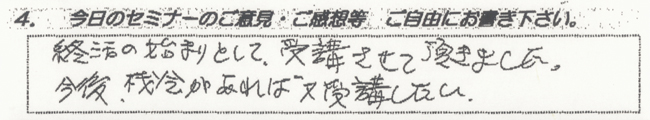 4. 今日のセミナーのご意見・ご感想等 ご自由にお書き下さい。
終活の始まりとして、受講させて頂きました。
今後、機会があれば又受講したい。